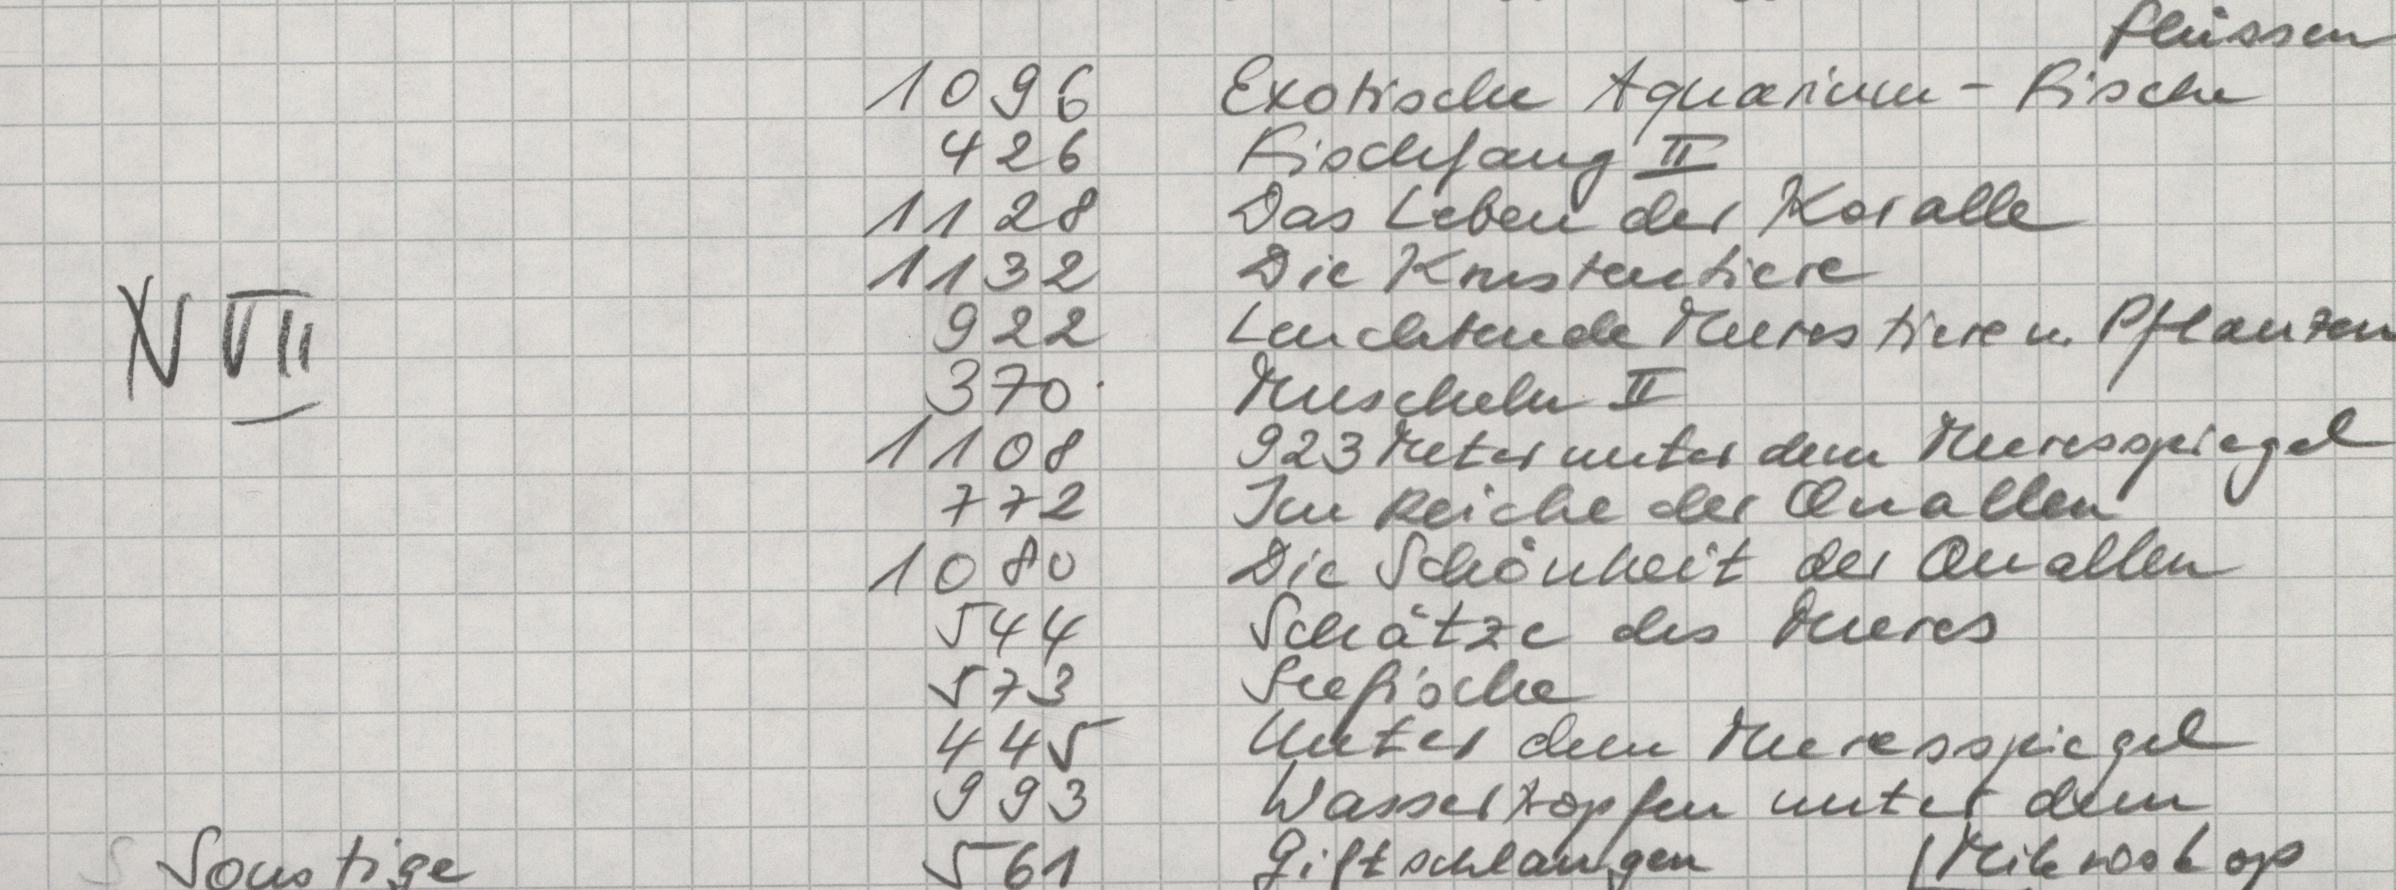 flüssen
1096 Exotische Aquarium-Fische
426 Fischfang II
1128 Das Leben der Koralle
1132 Die Krustentiere
XVII
922 Leuchtende Meerestiere u. Pflanzen
370 Muscheln II
1108 923 Meter unter dem Meeresspiegel
772 Im Reiche der Quallen
1080 Die Schönheit der Quallen
544 Schätze des Meeres
573 Seefische
445 Unter dem Meeresspiegel
993 Wassertropfen unter dem
Sonstige 561 Giftschlangen [Mikroskop